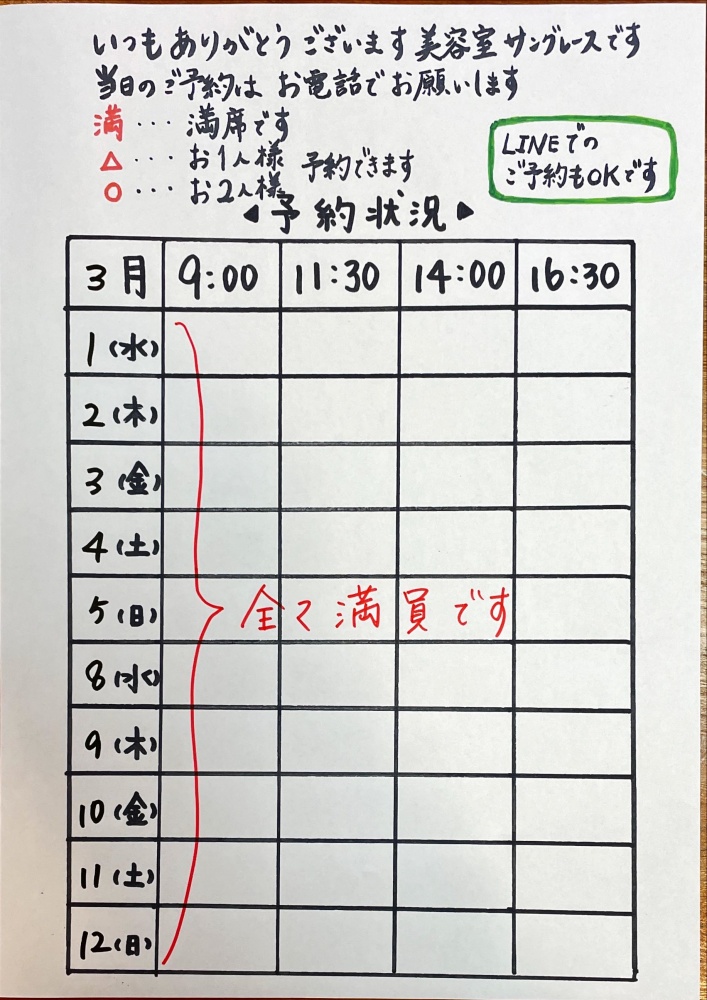 いつもありがとうございます美容室サングレースです
当日のご予約はお電話でお願いします
満・・・満席です
△・・・お1人様
○・・・お2人様
予約できます
LINEでの
ご予約もOKです
◀予約状況▶
3月 9:00 11:30 14:00 16:30
1(水)
2(木)
3(金)
4(土)
5(日) 全て満員です
8(水)
9(木)
10(金)
11(土)
12(日)